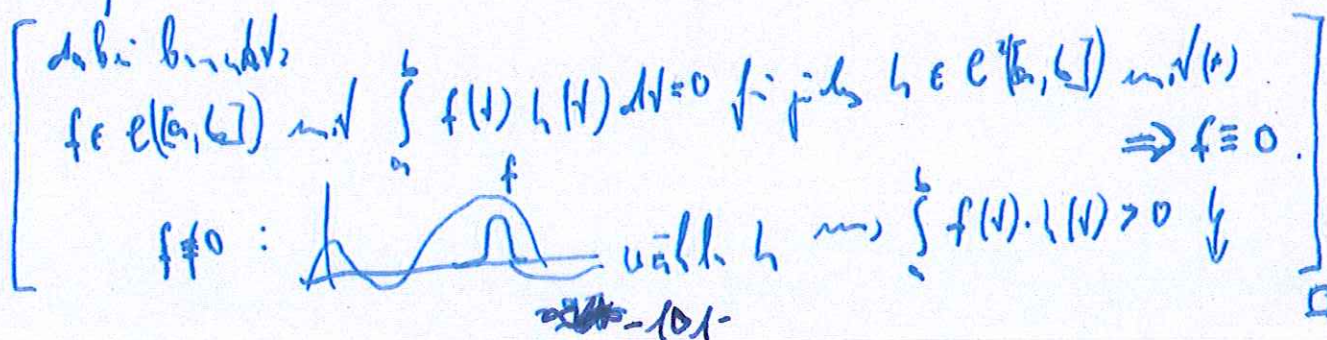 dabei benutzt:
f ∈ C([a,b]) mit ∫_a^b f(t) h(t) dt = 0 für jedes h ∈ C²([a,b]) mit (*)
⇒ f ≡ 0.
f ≢ 0 : f wähle h ⇝ ∫_a^b f(t)·h(t) > 0 ↯
-101-